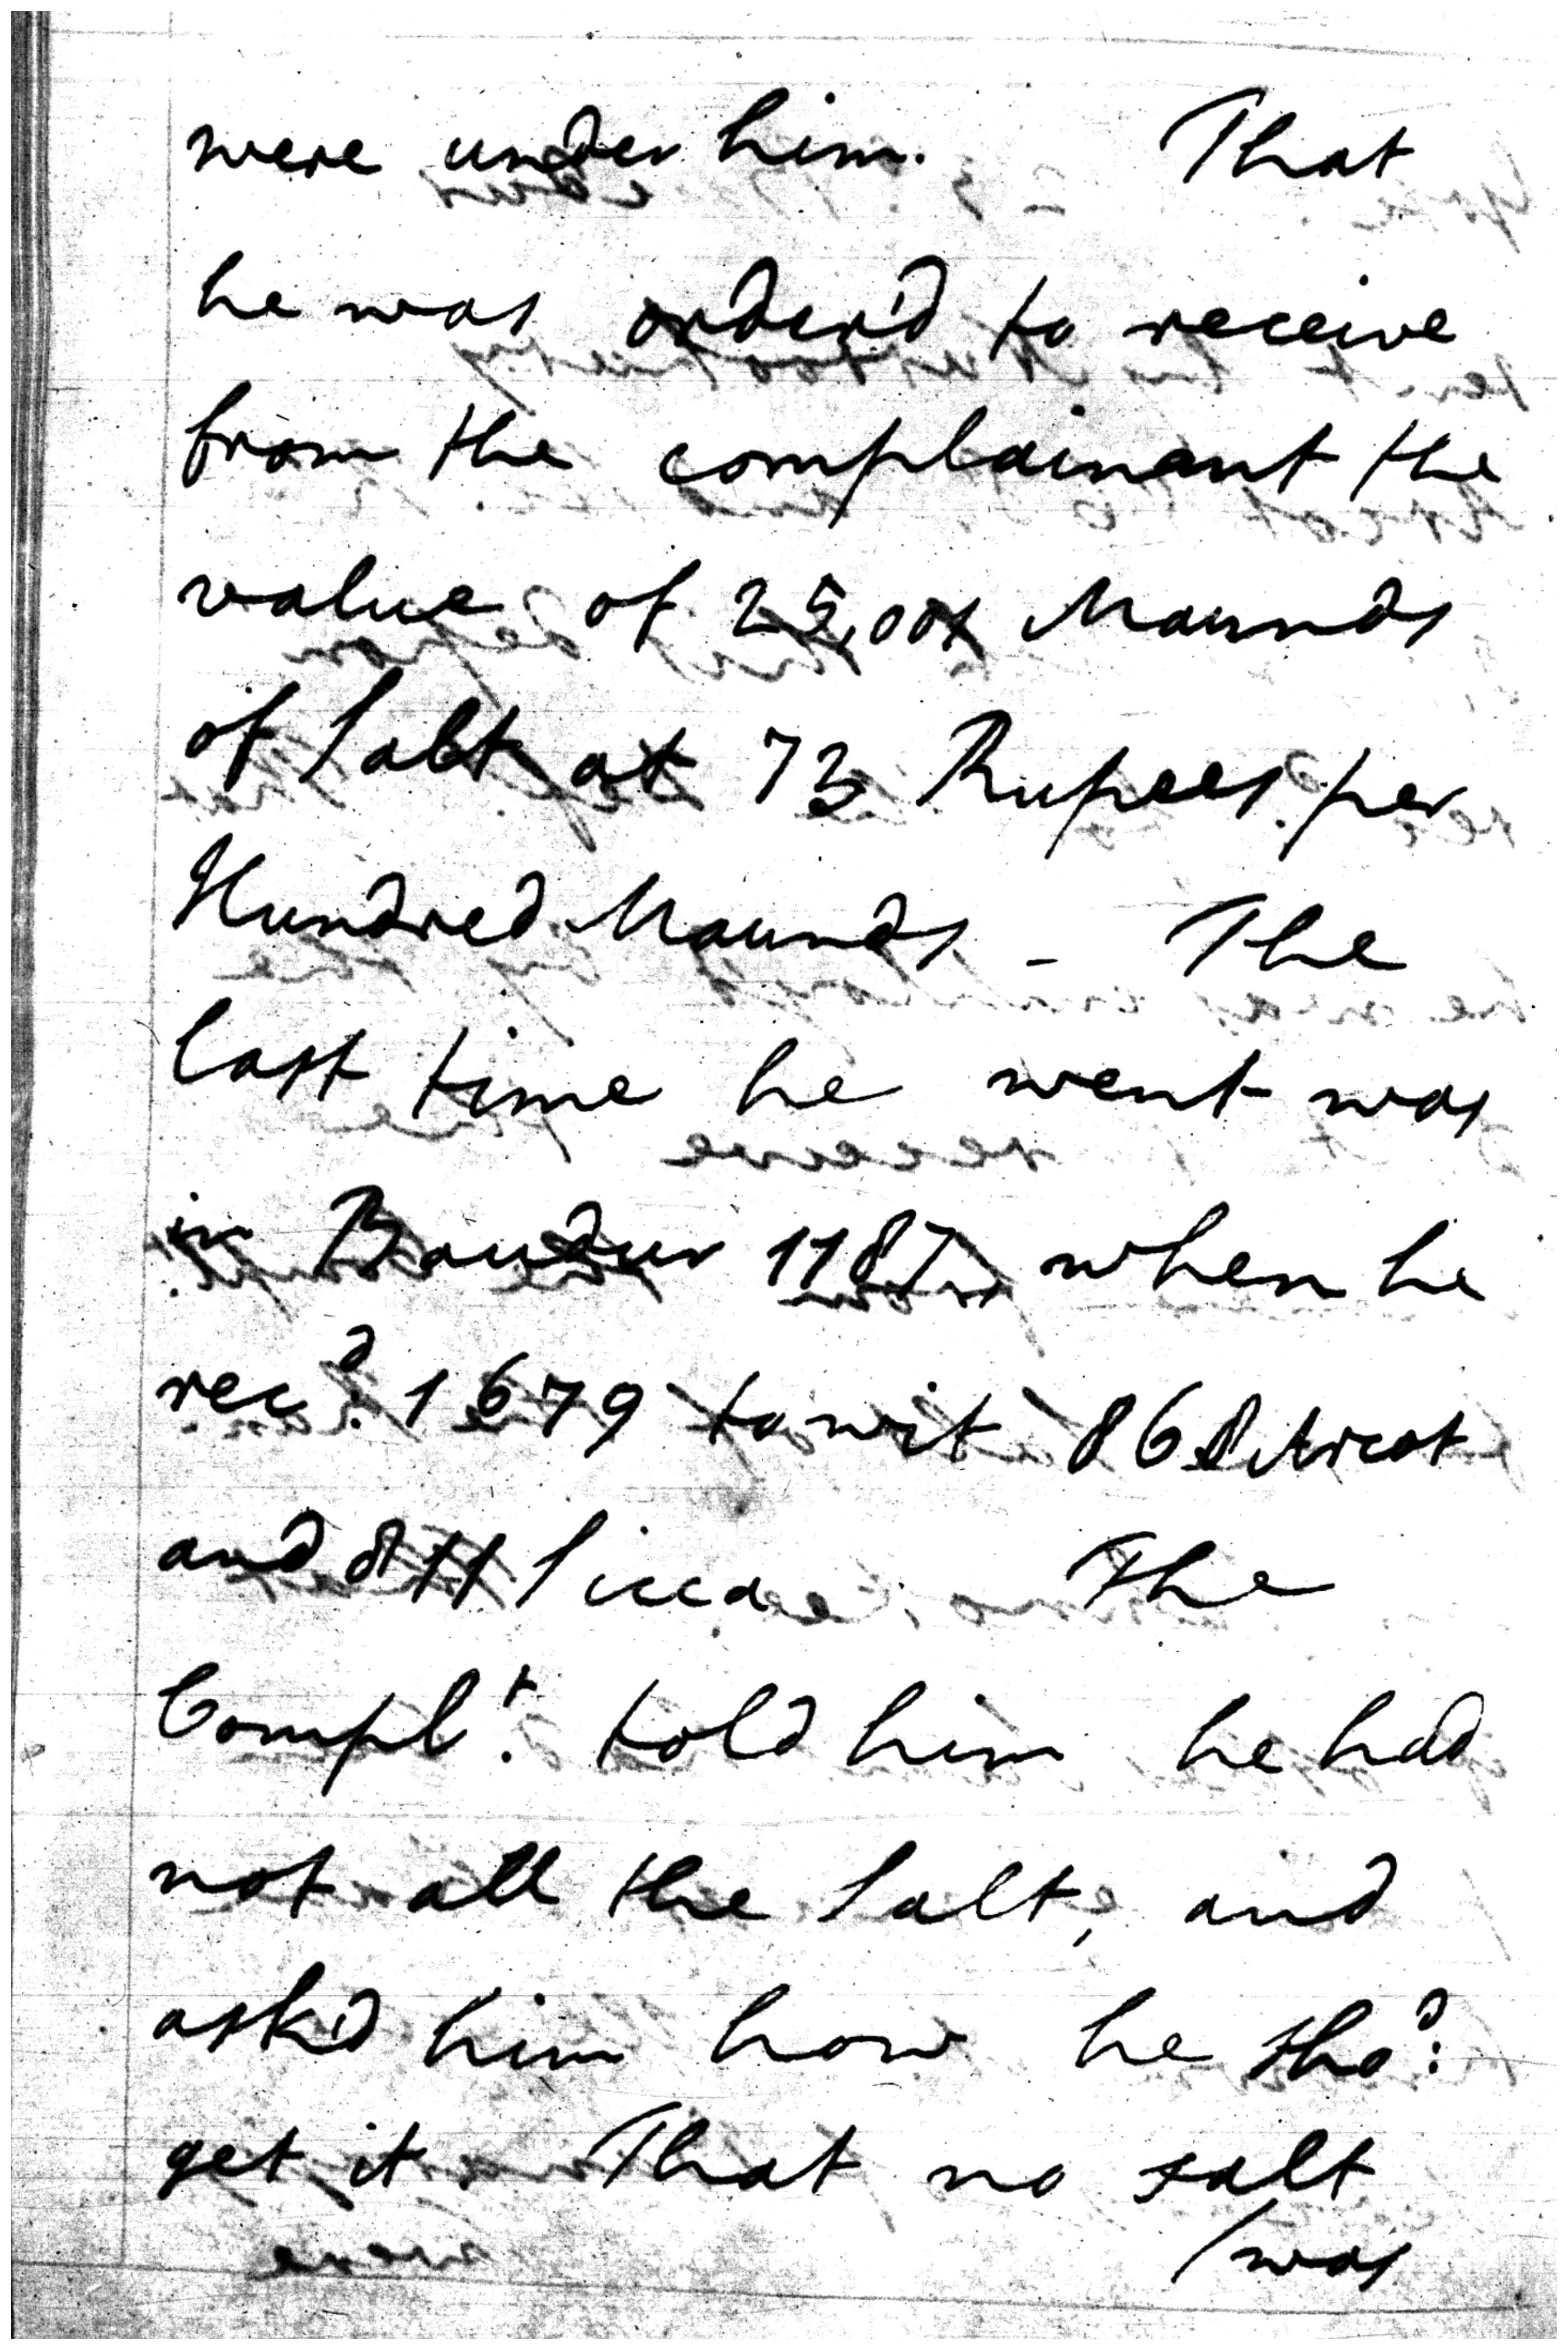 were under him. That
he was order'd to receive
from the complainant the
value of 25,001 Maunds
of Salt at 73 Rupees per
Hundred Maunds - The
last time he went was
in Baudur 1187, when he
rec.d 1679 to wit 868 Arcot
and 811 Sicca The
Compl.t told him he had
not all the Salt, and
ask'd him how he sho.d
get it That no salt
/was